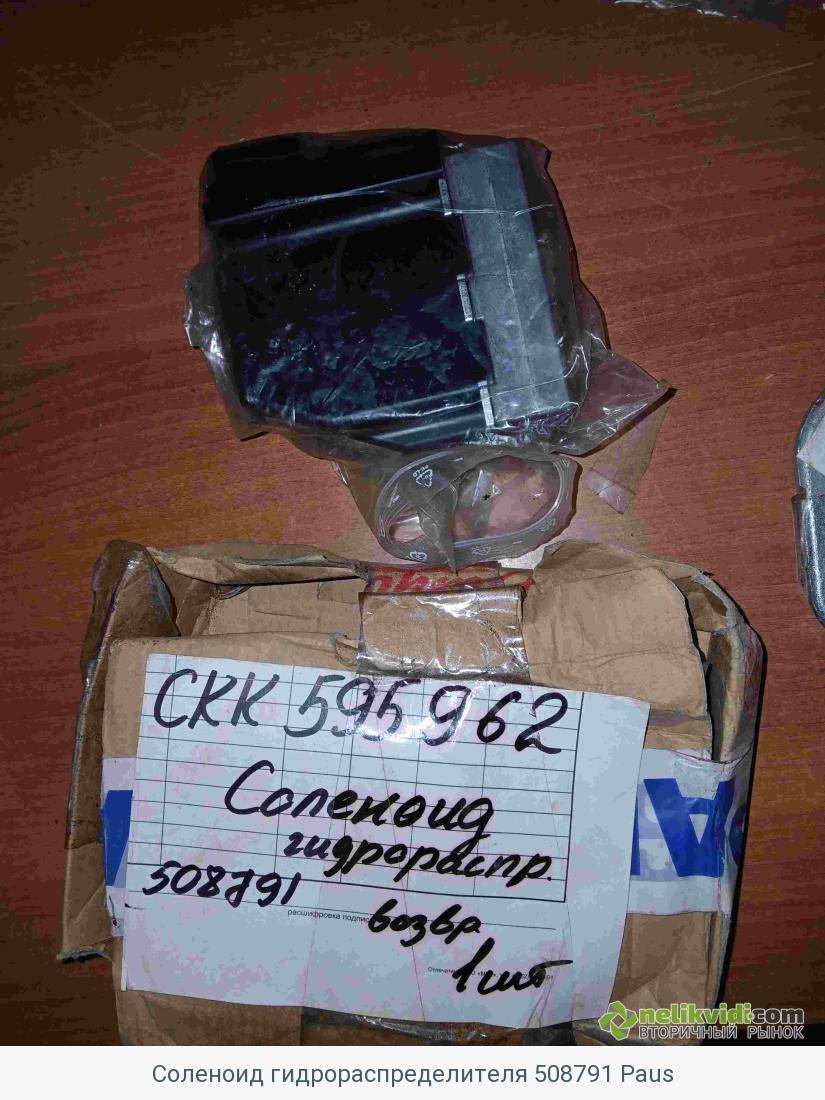 СКК 595962
Соленоид
гидрораспр.
508791
расшифровка подпис
возвр
1 шт
nelikvidi.com
ВТОРИЧНЫЙ РЫНОК
Соленоид гидрораспределителя 508791 Paus